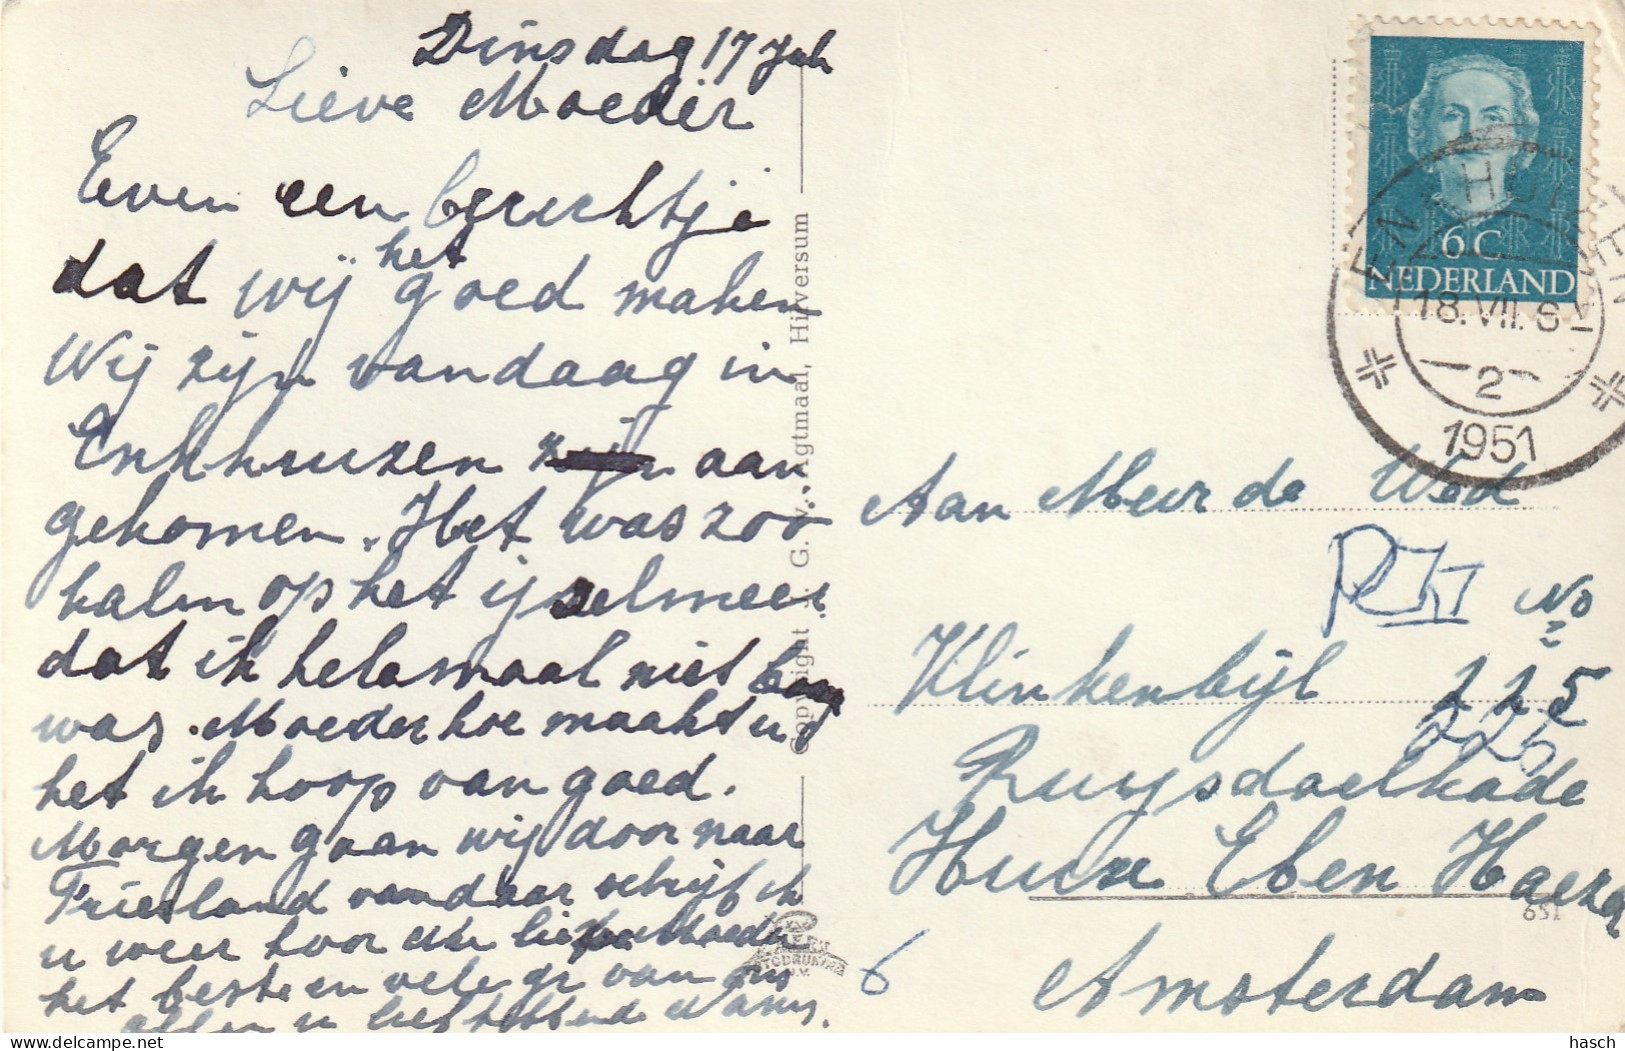 Dinsdag 17 Juli
Lieve Moeder
Even een berichtje
dat wij het goed maken
Wij zijn vandaag in
Enkhuizen zijn aan
gekomen. Het was zoo
kalm op het ijselmeer
dat ik helemaal niet bang
was. Moeder hoe maakt u
het ik hoop van goed.
Morgen gaan wij door naar
Friesland vandaar schrijf ik
u weer hoor lieve Moeder
het beste en vele gr van ons
allen u liefhebbende
Copyright J. G. v. Agtmaal, Hilversum
6C
NEDERLAND
18.VII.51
2
1951
Aan Mevr de Wed
No
Klinkenbijl 225
225
Ruysdaelkade
Huize Eben Haezer
651
6
Amsterdam
hasch